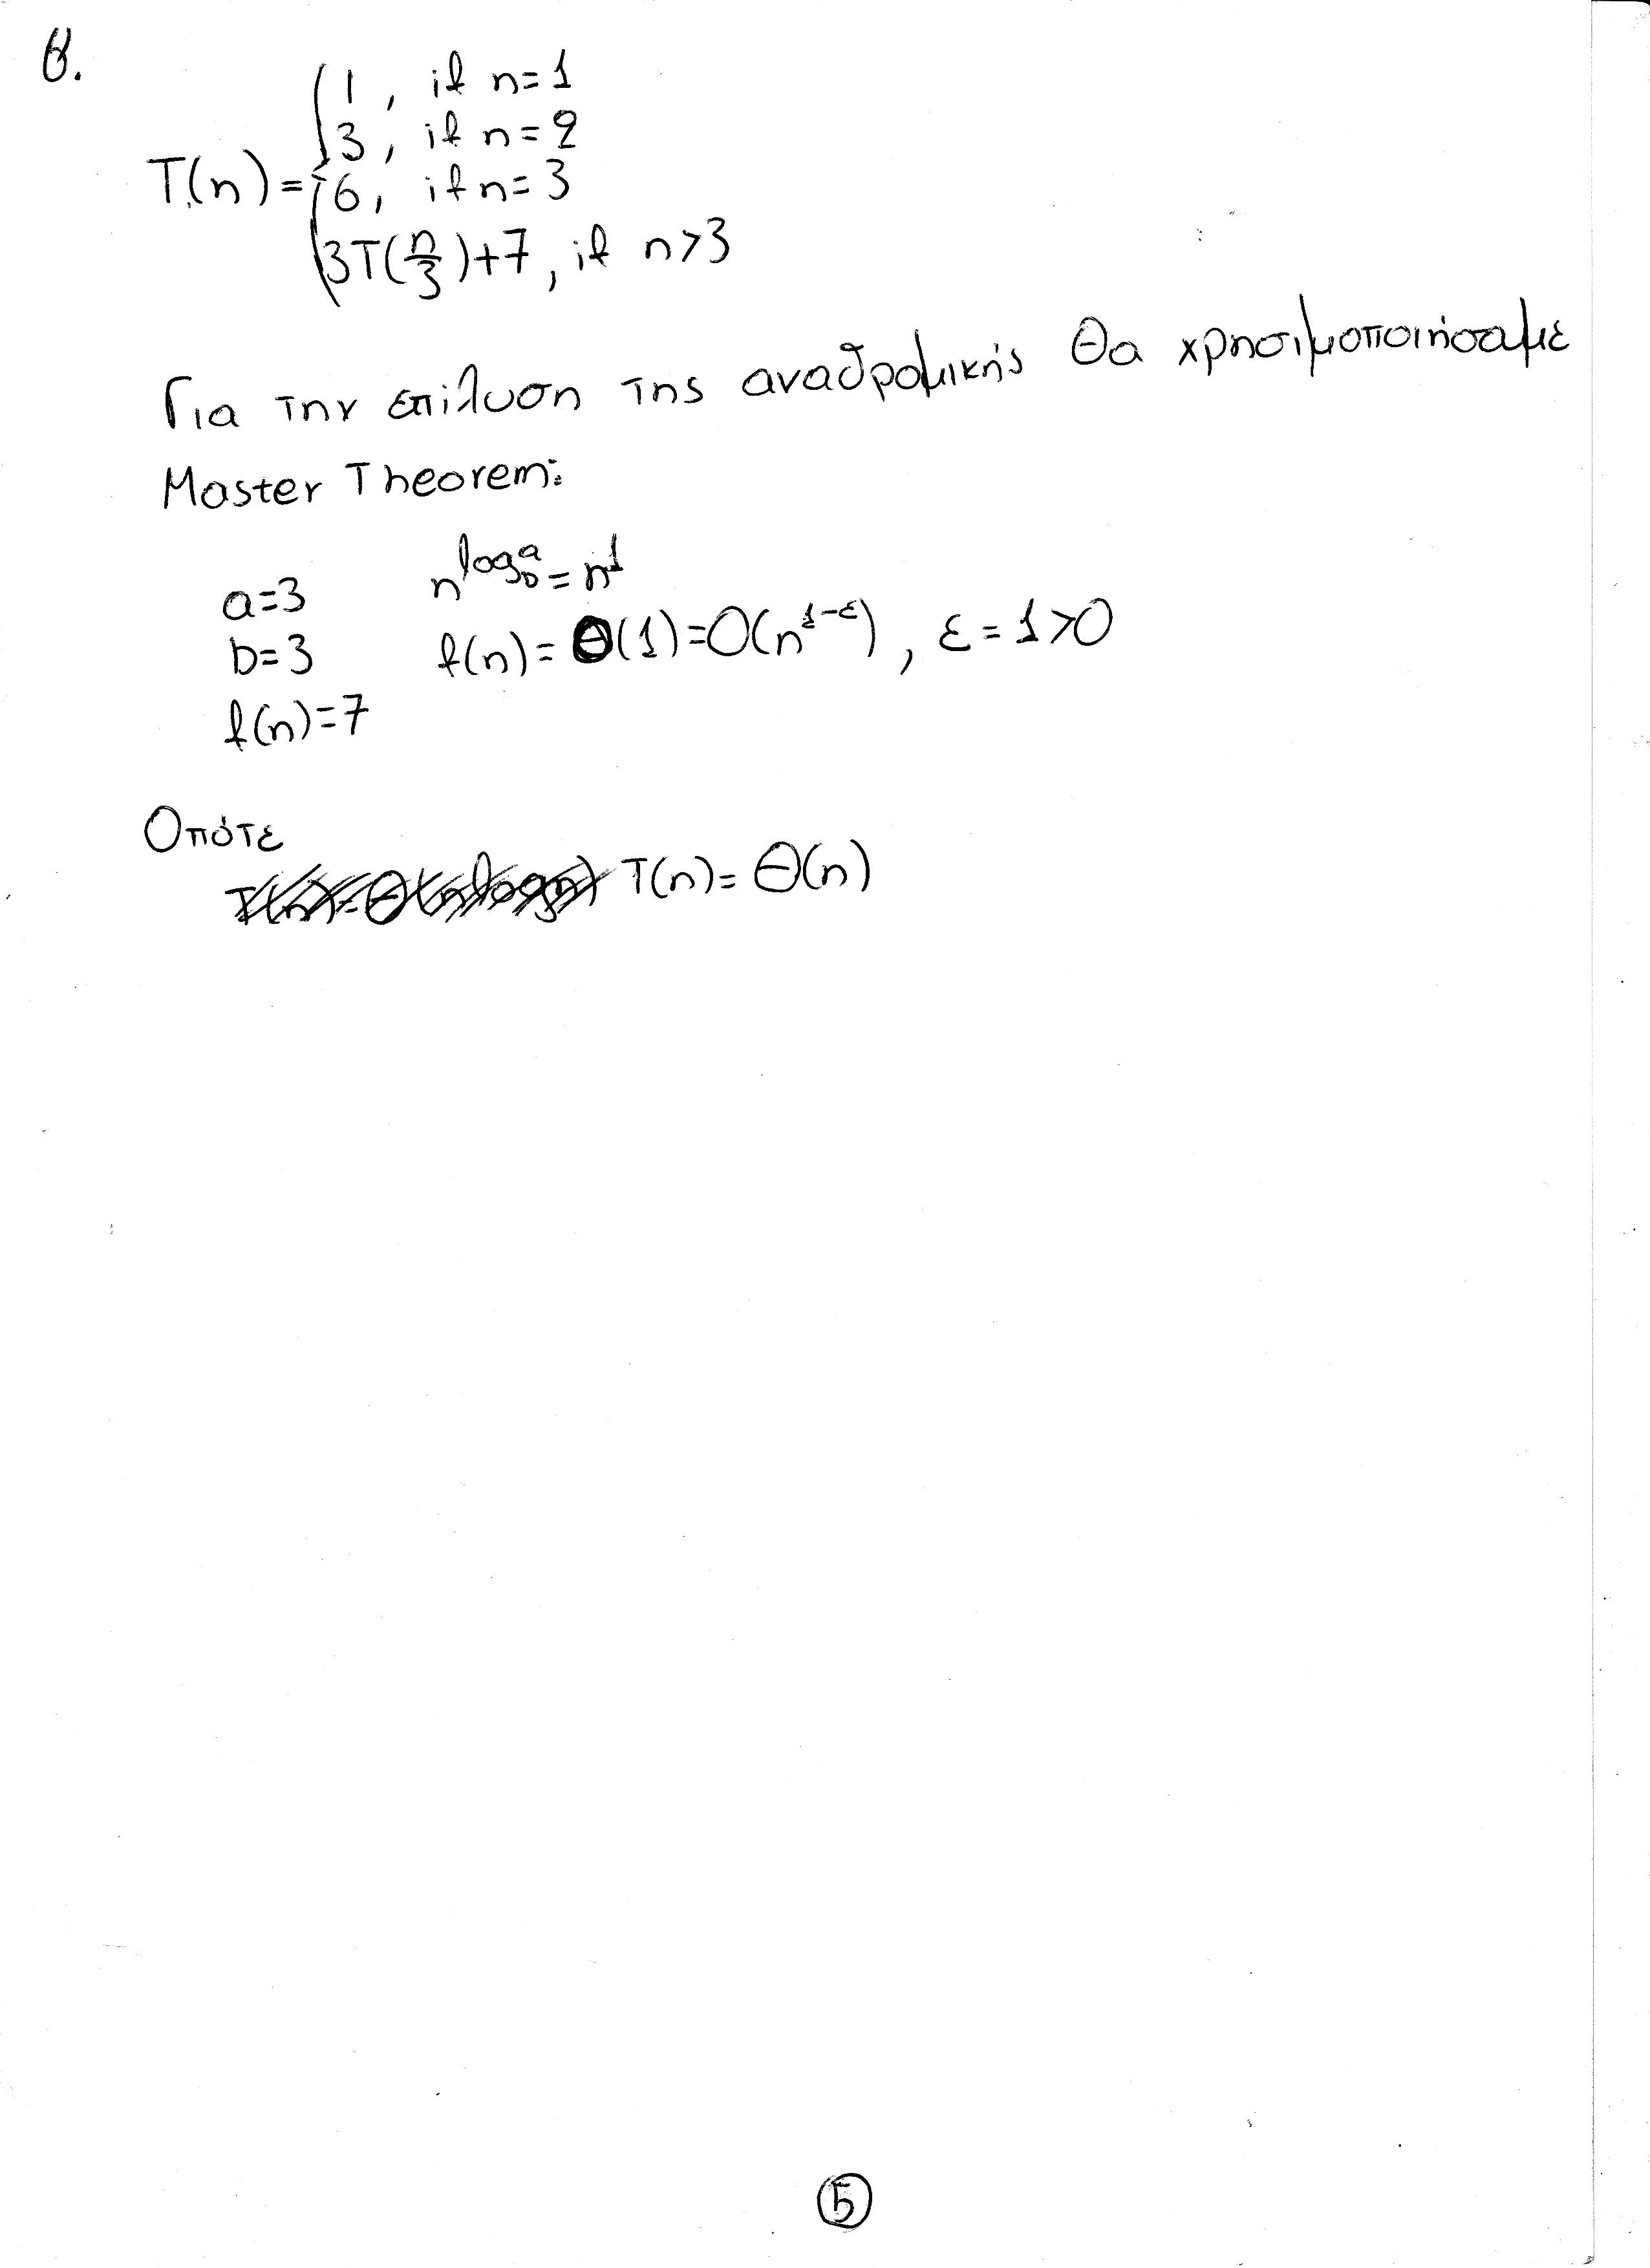 β.
1, if n=1
3, if n=2
T(n)= 6, if n=3
3T(n/3)+7, if n>3
Για την επίλυση της αναδρομικής θα χρησιμοποιήσαμε
Master Theorem:
a=3 n^log_b^a = n^1
b=3 f(n)=Θ(1)=O(n^{1-ε}), ε=1>0
f(n)=7
Οπότε
T(n)=Θ(nlogn) T(n)=Θ(n)
5